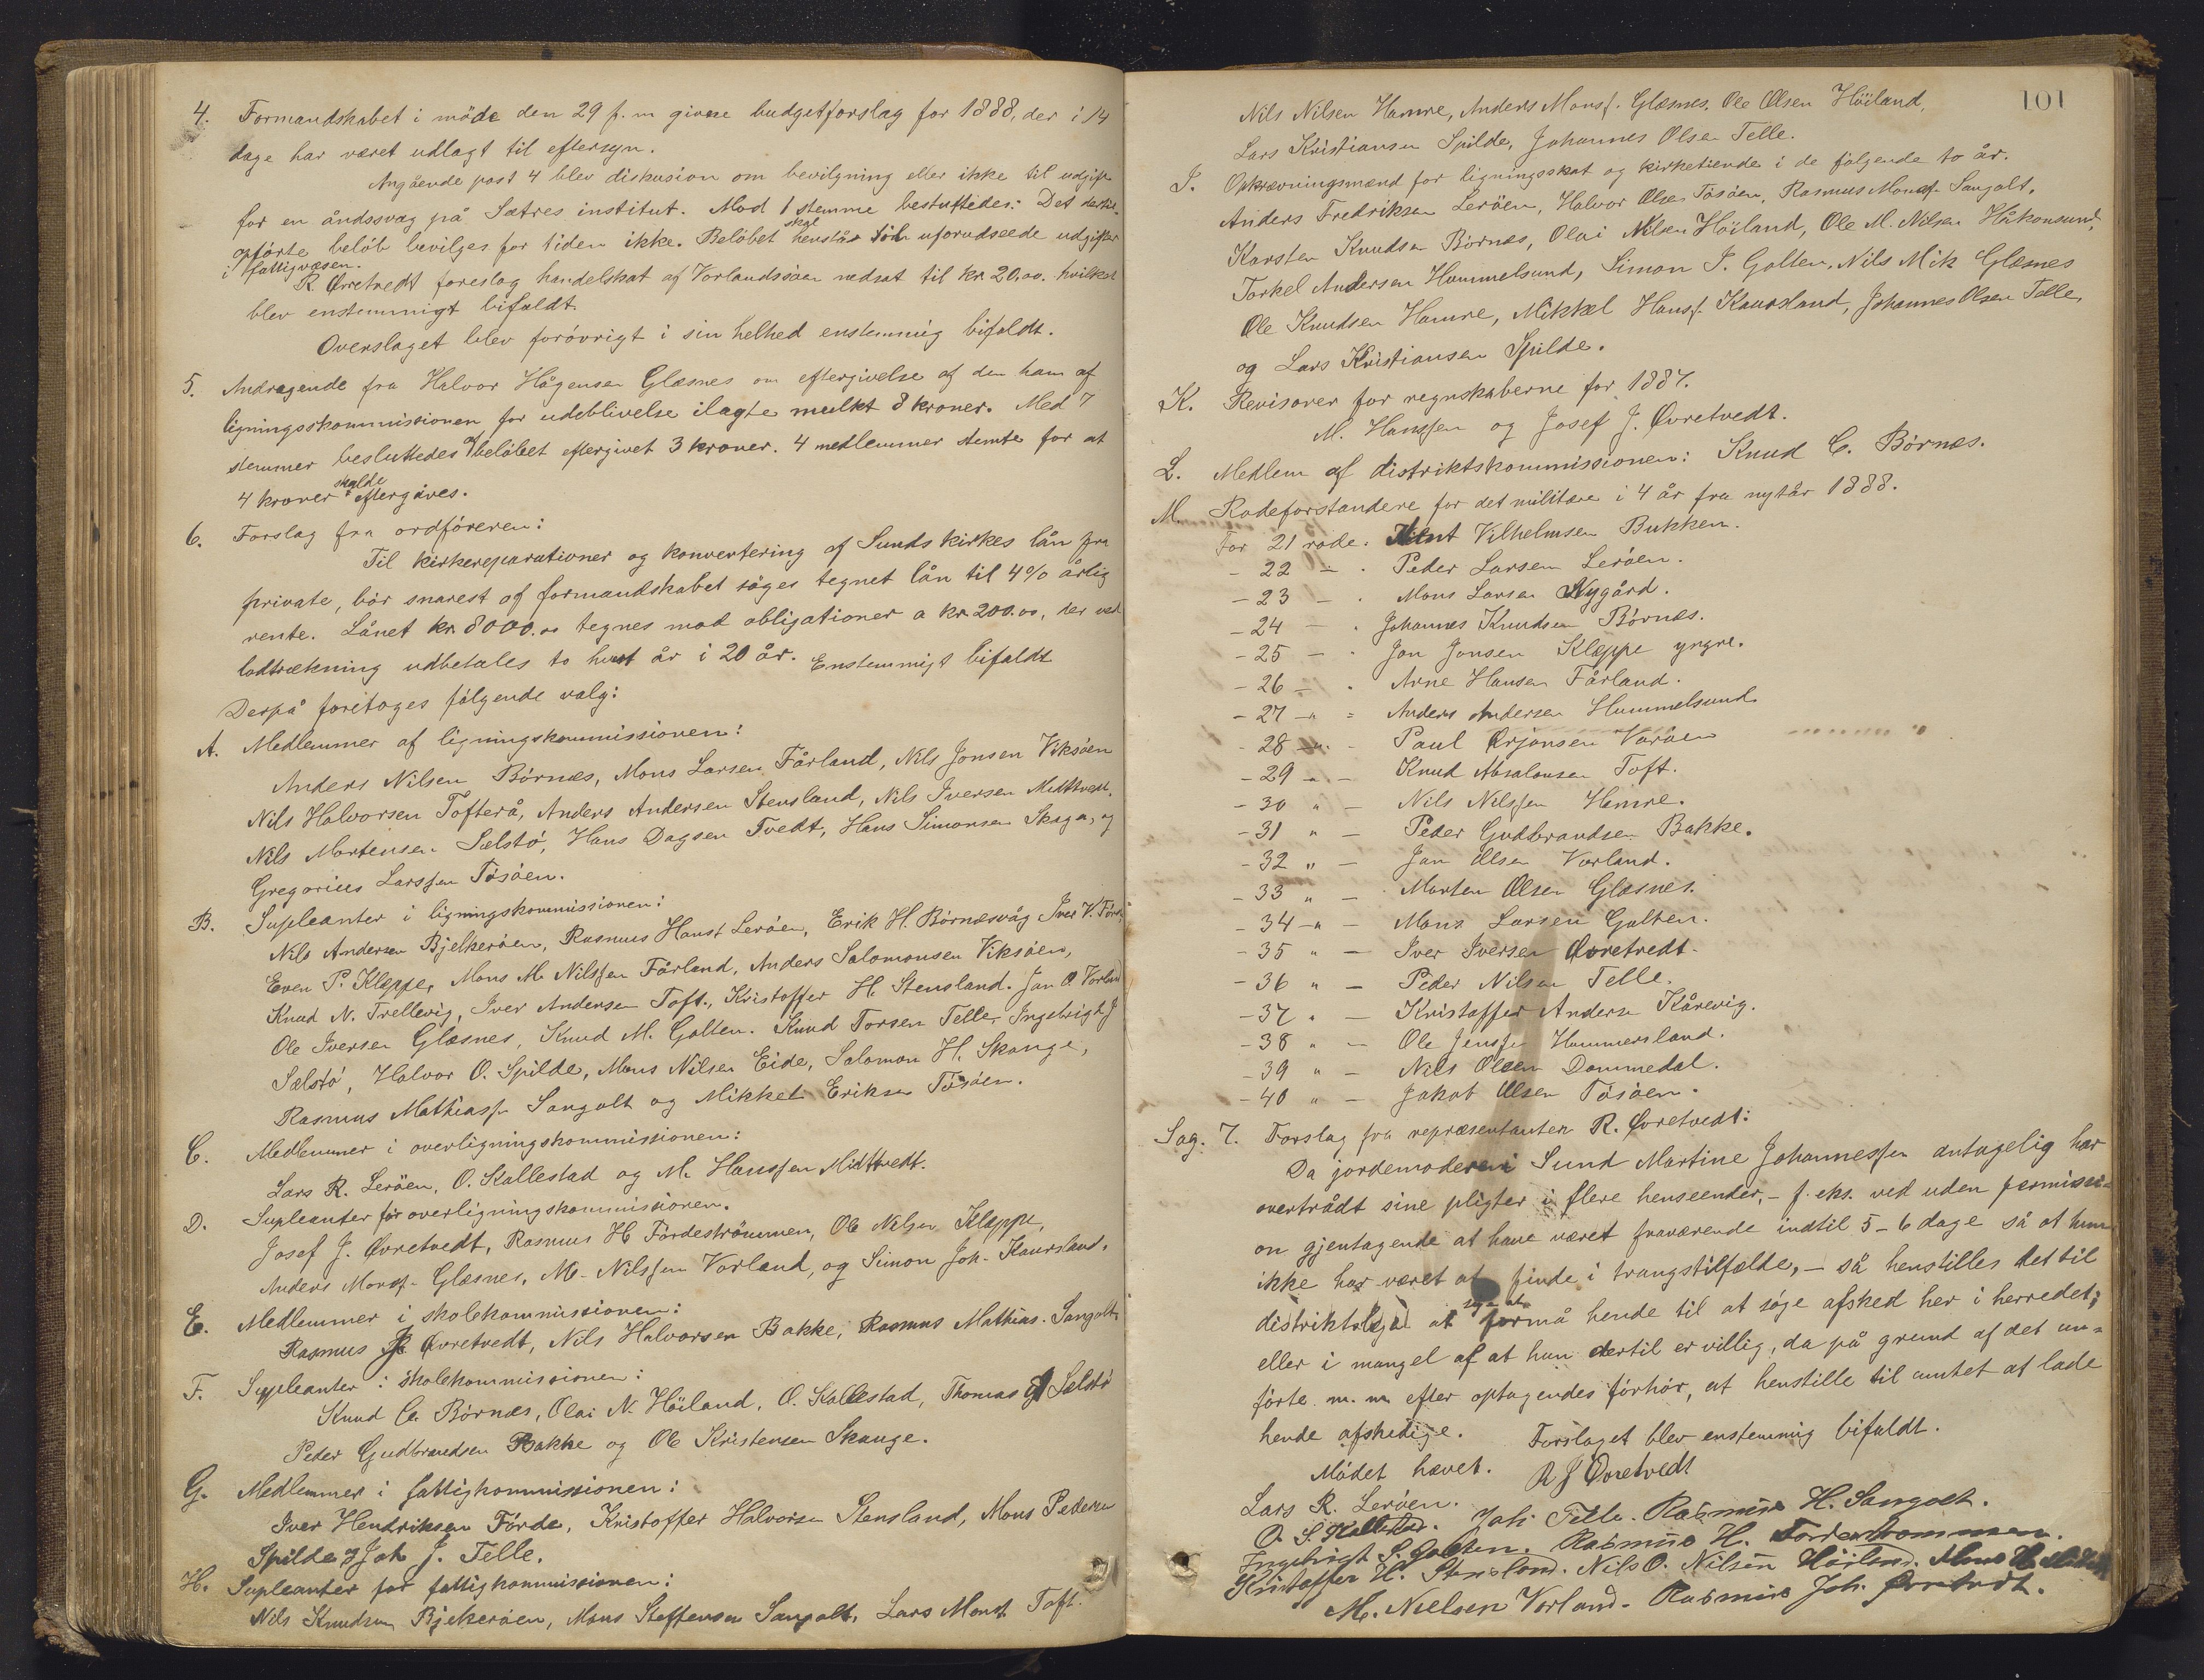 4. Formandskabet i möde den 29 f. m givne budgetforslag for 1888, der i 14
dage har været udlagt til eftersyn.
Angående post 4 blev diskusion om bevilgning eller ikke til udgift
for en åndssvag på Sætres institut. Mod 1 stemme besluttedes: Det dertil
opförte belöb bevilges for tiden ikke. Belöbet skal henstå til uforudseede udgifter
i fattigvæsen.
R. Øvretvedt foreslog handelskat af Vorlandsöen nedsat til kr 20,00. hvilket
blev enstemmigt bifaldt.
Overslaget blev forövrigt i sin helhed enstemmig bifaldt.
5. Andragende fra Halvor Hågensen Glæsnes om eftergivelse af den ham af
ligningskommissionen for udeblivelse ilagte mulkt 8 kroner. Med 7
stemmer besluttedes af belöbet eftergivet 3 kroner. 4 medlemmer stemte for at
4 kroner skulde eftergives.
6. Forslag fra ordföreren:
Til kirkereparationer og konvertering af Sunds kirkes lån fra
private, bör snarest af formandskabet söges tegnet lån til 4% årlig
rente. Lånet kr. 8000.00 tegnes mod obligationer a kr. 200.00, der ved
lodtrækning udbetales to hvert år i 20 år. Enstemmigt bifaldt
Derpå foretoges fölgende valg:
A. Medlemmer af ligningskommissionen:
Anders Nilsen Börnes, Mons Larsen Fårland, Nils Jonsen Viksöen
Nils Halvorsen Tofterå, Anders Andersen Stensland, Nils Iversen Midttvedt,
Nils Mortensen Sælstö, Hans Dagsen Tvedt, Hans Simonsen Skage, og
Gregorius Larssen Tösöen.
B. Supleanter i ligningskommissionen:
Nils Andersen Bjelkeröen, Rasmus Hansf Leröen, Erik H. Börnesvåg Iver V. Förde
Even P. Kleppe, Mons M. Nilssen Fårland, Anders Salomonsen Viksöen,
Knud N. Trellevig, Iver Andersen Toft., Kristoffer H. Stensland. Jan O. Vorland
Ole Iversen Glæsnes, Knud M. Golten. Knud Torsen Telle, Ingebrigt J
Sælstö, Halvor O. Spilde, Mons Nilsen Eide, Salomon H. Skange,
Rasmus Mathiasf. Sangolt og Mikkel Eriksen Tösöen.
C. Medlemmer i overligningskommissionen:
Lars R. Leröen, O. Kallestad og M. Hanssen Midttvedt.
D. Supleanter för overligningskommissionen.
Josef J. Øvretvedt, Rasmus H Fördeströmmen, Ole Nilsen Kleppe,
Anders Monsf. Glæsnes, M. Nilssen Vorland, og Simon Joh. Kaursland.
E. Medlemmer i skolekommissionen:
Rasmus J. Øvretvedt, Nils Halvorsen Bakke, Rasmus Mathias. Sangolt
F. Suppleanter i skolekommissionen:
Knud C. Börnes, Olai N. Höiland, O. Kallestad, Thomas J Sælstö
Peder Gudbrandsen Bakke og Ole Kristensen Skange.
G. Medlemmer i fattigkommissionen:
Iver Hendriksen Förde, Kristoffer Halvorsen Stensland, Mons Pedersen
Spilde og Joh J. Telle.
H. Supleanter for fattigkommissionen:
Nils Knudsen Bjelkeröen, Mons Steffensen Sangolt, Lars Monsf. Toft.
101
Nils Nilsen Hamre, Anders Monsf. Glæsnes. Ole Olsen Höiland,
Lars Kristiansen Spilde, Johannes Olsen Telle.
I. Opkrævningsmænd for ligningsskat og kirketiende i de fölgende to år.
Anders Fredriksen Leröen, Halvor Olsen Tösöen, Rasmus Monsf. Sangolt,
Karsten Knudsen Börnes, Olai Nilsen Höiland, Ole M. Nilsen Håkonsund,
Torkel Andersen Hummelsund, Simon I. Golten, Nils Mik Glæsnes
Ole Knudsen Hamre, Mikkel Hansf. Kaursland, Johannes Olsen Telle,
og Lars Kristiansen Spilde.
K. Revisorer for regnskaberne for 1887.
M. Hanssen og Josef J. Øvretvedt.
L. Medlem af distriktskommissionen: Knud C. Börnes.
M. Rodeforstandere for det militære i 4 år fra nytår 1888.
For 21 rode. Vilhelmsen Bukken.
- 22 - . Peder Larsen Leröen.
- 23 - . Mons Larsen Nygård.
- 24 - . Johannes Knudsen Börnes.
- 25 - . Jon Jonsen Kleppe yngre.
- 26 - . Arne Hansen Fårland.
- 27 -"- Anders Andersen Hummelsund
- 28 -"- Paul Ørjansen Voröen
- 29 " - Knud Absalonsen Toft.
- 30 " - Nils Nilssen Hamre.
- 31 " - Peder Gudbrandsen Bakke.
- 32 " - Jan Olsen Vorland.
- 33 " - Morten Olsen Glæsnes.
- 34 -" - Mons Larsen Golten.
- 35 " - Iver Iversen Øvretvedt.
- 36 " - Peder Nilsen Telle.
- 37 " - Kristoffer Andersen Kårevig.
- 38 " - Ole Jenssen Hummersland.
- 39 " - Nils Olsen Dommedal.
- 40 " - Jakob Olsen Tösöen.
Sag. 7. Forslag fra repræsentanten R. Øvretvedt:
Da jordemoderen i Sund Martine Johannessen antagelig har
overtrådt sine pligter i flere henseender, - f. eks. ved uden permissi-
on gjentagende at have været fraværende indtil 5-6 dage så at hun
ikke har været at finde i trangstilfælde, - så henstilles det til
distriktslægen at søge at formå hende til at søge afsked her i herredet;
eller i mangel af at hun dertil er villig, da på grund af det an-
förte m. m. efter optagendes förhör, at henstille til amtet at lade
hende afskedige. Forslaget blev enstemmig bifaldt.
Mödet hævet. R J Øvretvedt
Lars R. Leröen. Joh Telle. Rasmus H. Sangolt.
O. S. Kallestad. Rasmus H. Fordestrommen.
Ingebrigt S. Golten.
Kristoffer H. Stensland. Nils O. Nilsen Höiland. Mons H.
M. Nielsen Vorland. Rasmus Joh. Øvretvedt.